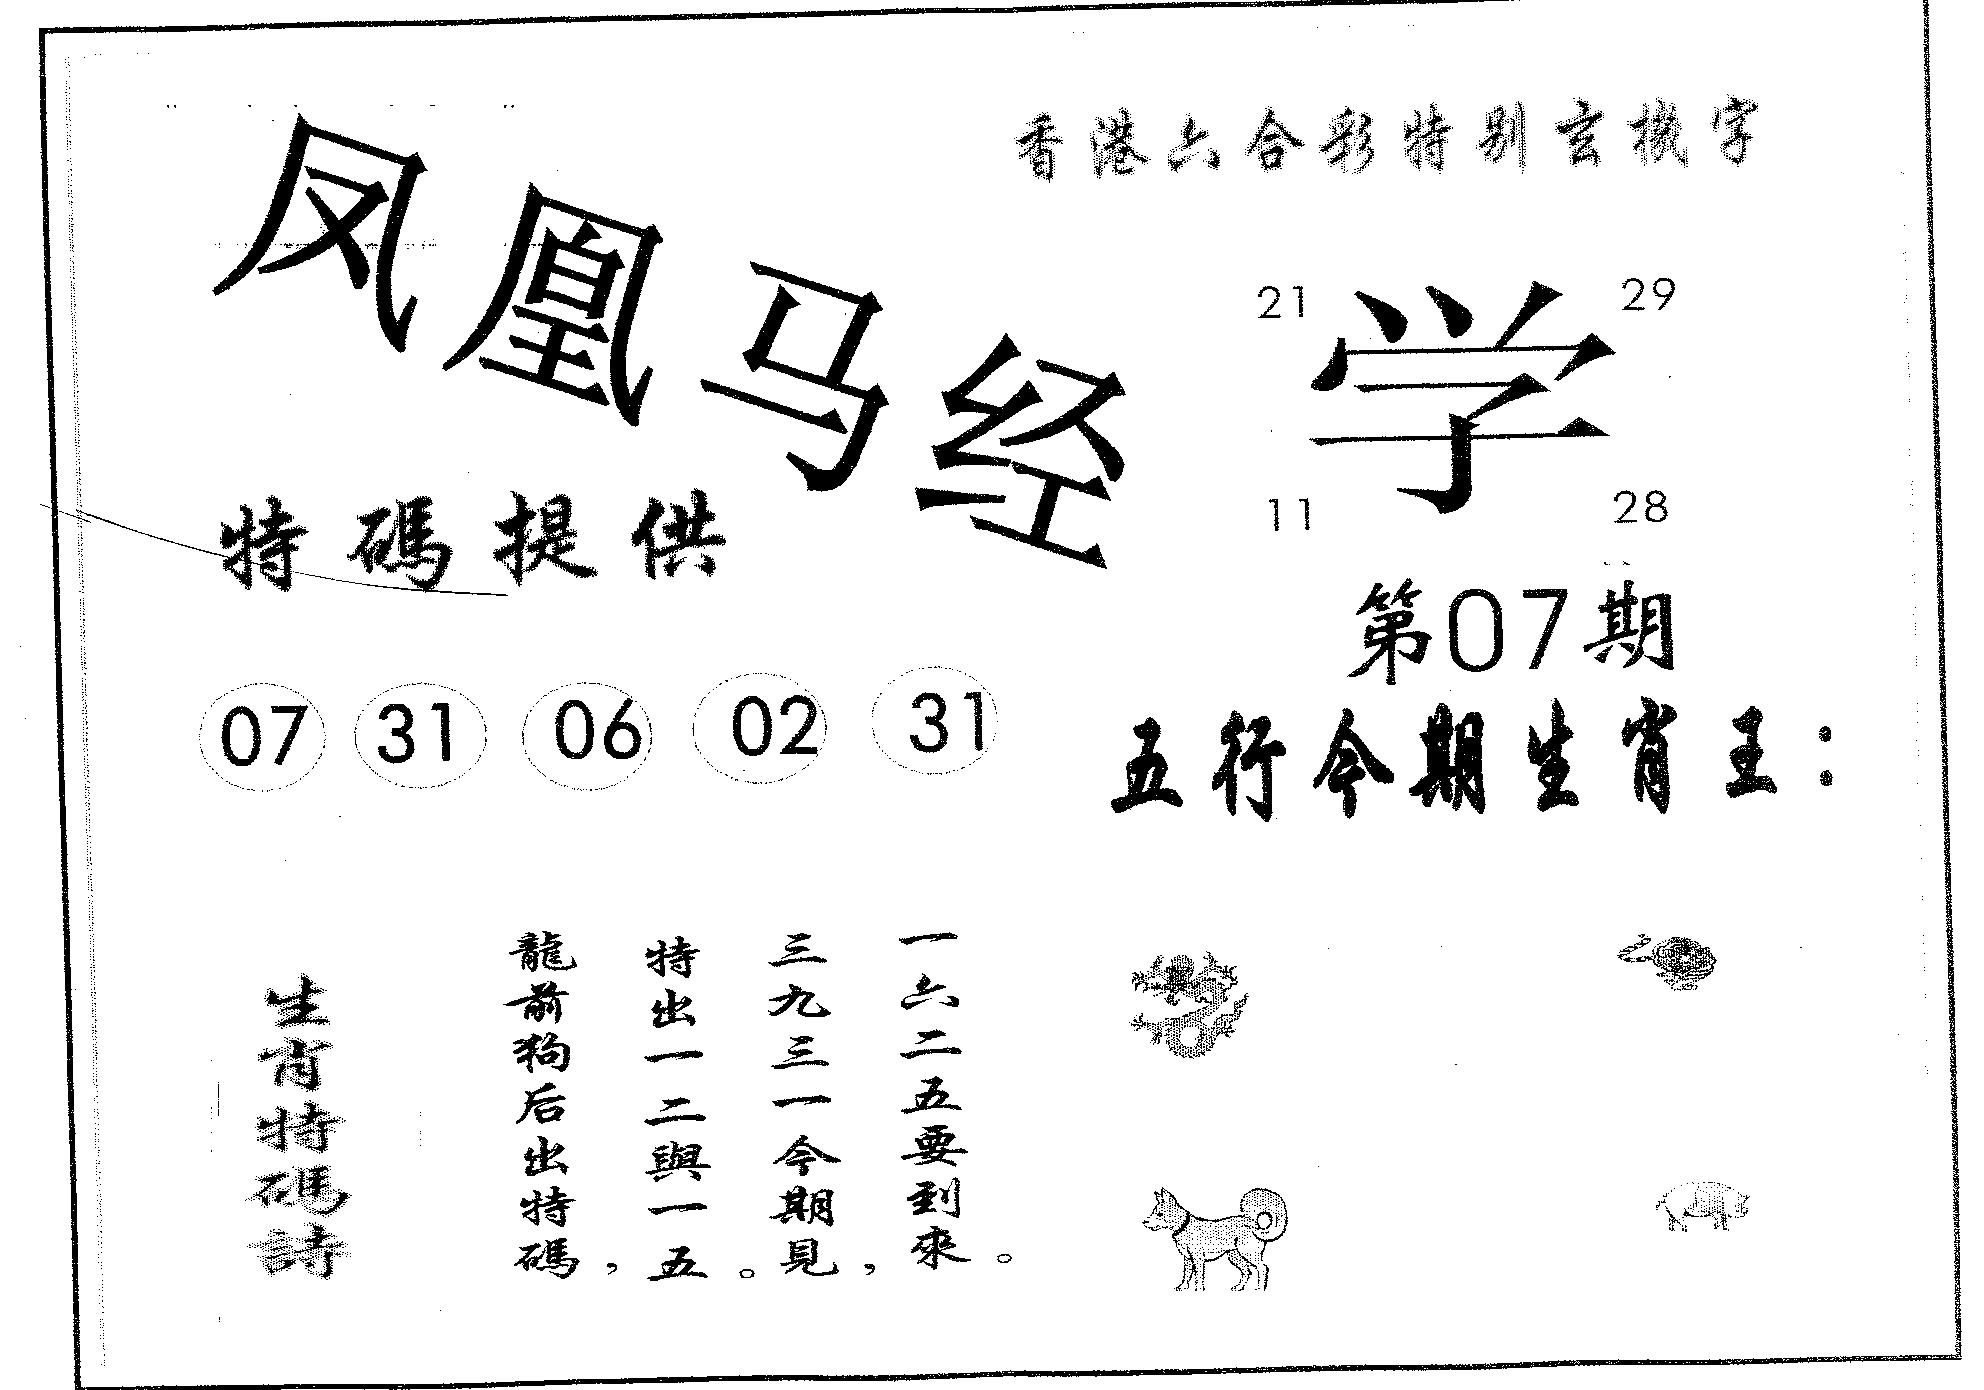 香港六合彩特别玄機字
凤凰马经
21 29
学
11 28
特碼提供
第07期
07 31 06 02 31
五行今期生肖王：
生肖特碼詩
龍前狗后出特碼，
特出一二與一五。
三九三一今期見，
一六二五要到來。